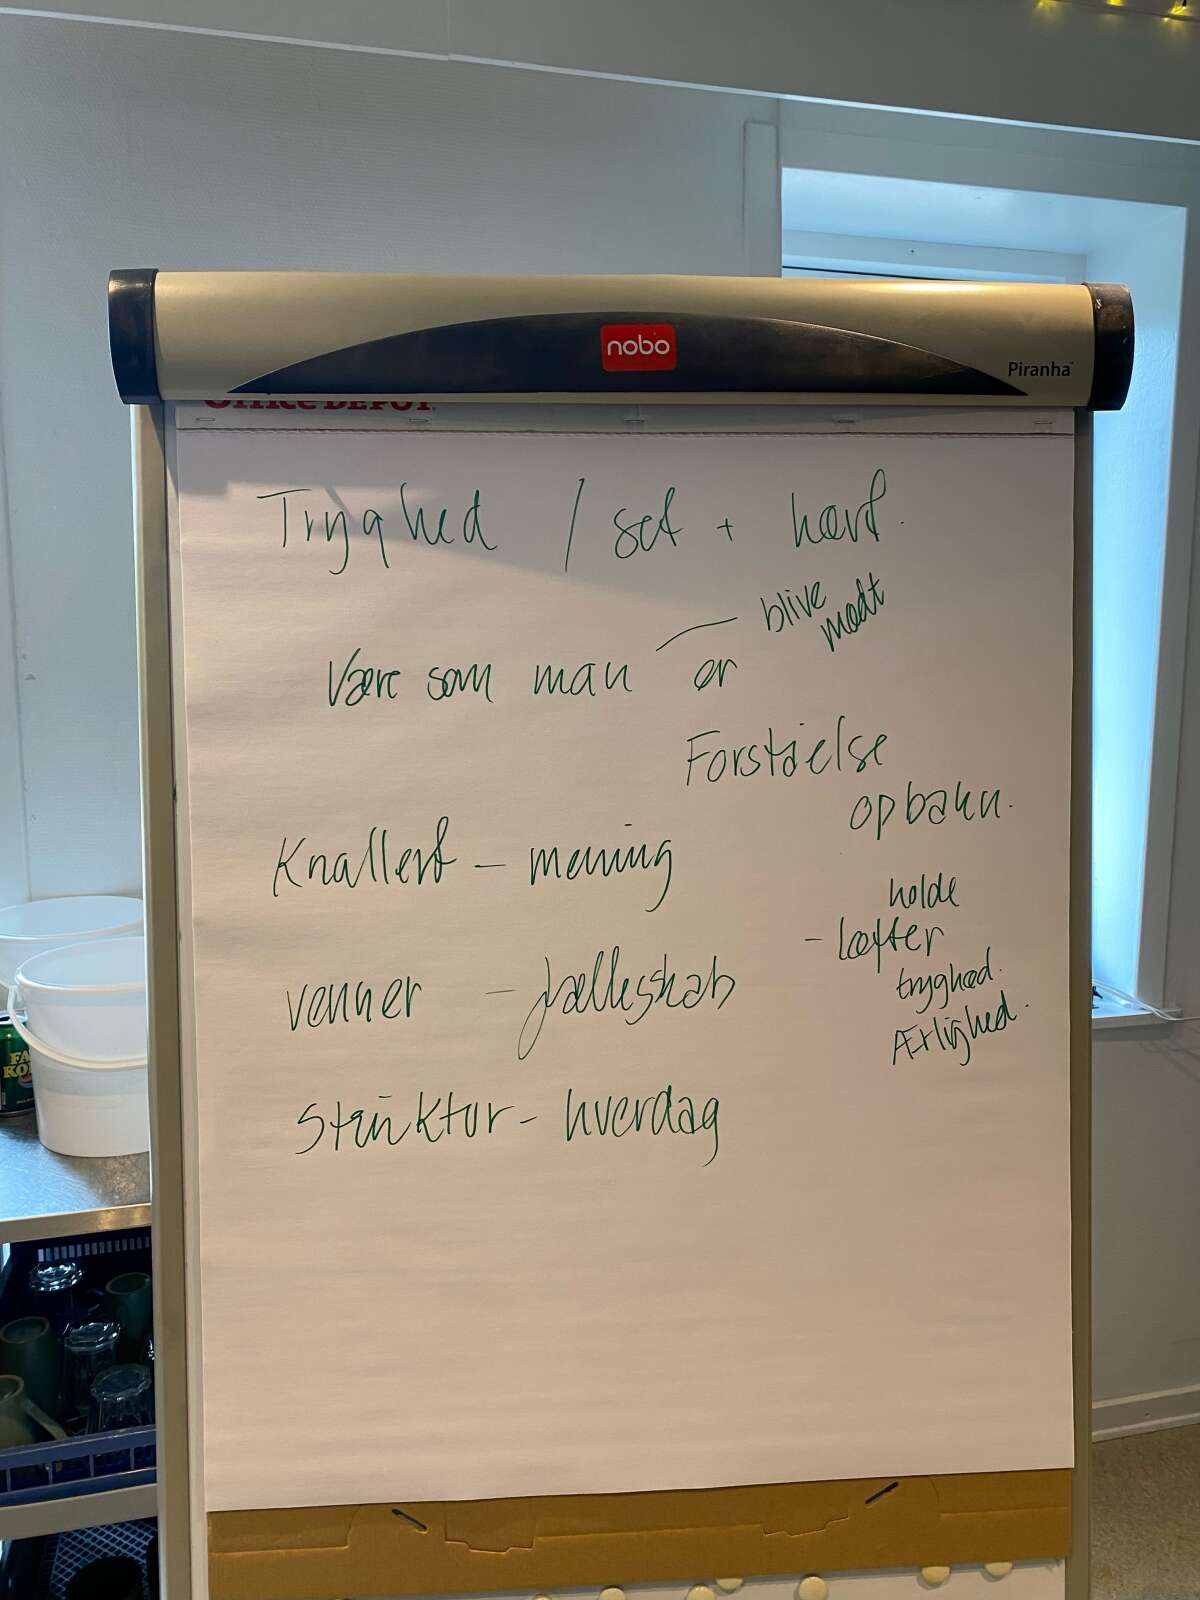 nobo
Piranha
Office DEPOT
Tryghed / set + hørt.
blive
mødt
Være som man er
Forståelse
opbakn.
Knallert - mening
holde
- løfter
venner - fællesskab
tryghed.
Ærlighed.
Struktur - hverdag
FA
KO